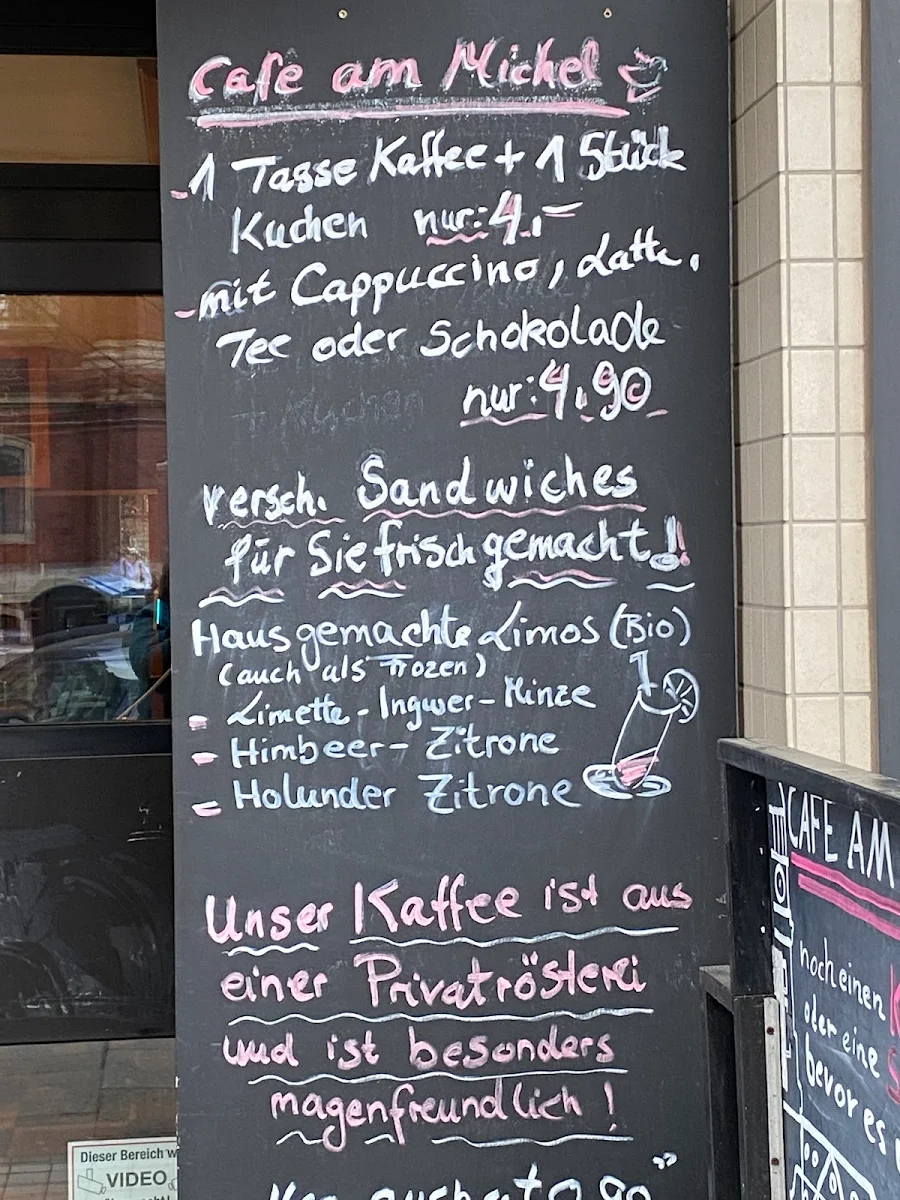 Café am Michel
- 1 Tasse Kaffee + 1 Stück
Kuchen nur: 4,-
- mit Cappuccino, Latte,
Tee oder Schokolade
nur: 4,90
versch. Sandwiches
für Sie frisch gemacht!
Hausgemachte Limos (Bio)
(auch als Frozen)
- Limette-Ingwer-Minze
- Himbeer-Zitrone
- Holunder Zitrone
Unser Kaffee ist aus
einer Privatrösterei
und ist besonders
magenfreundlich!
CAFE AM
noch einen
oder eine
bevor es
Dieser Bereich w
VIDEO